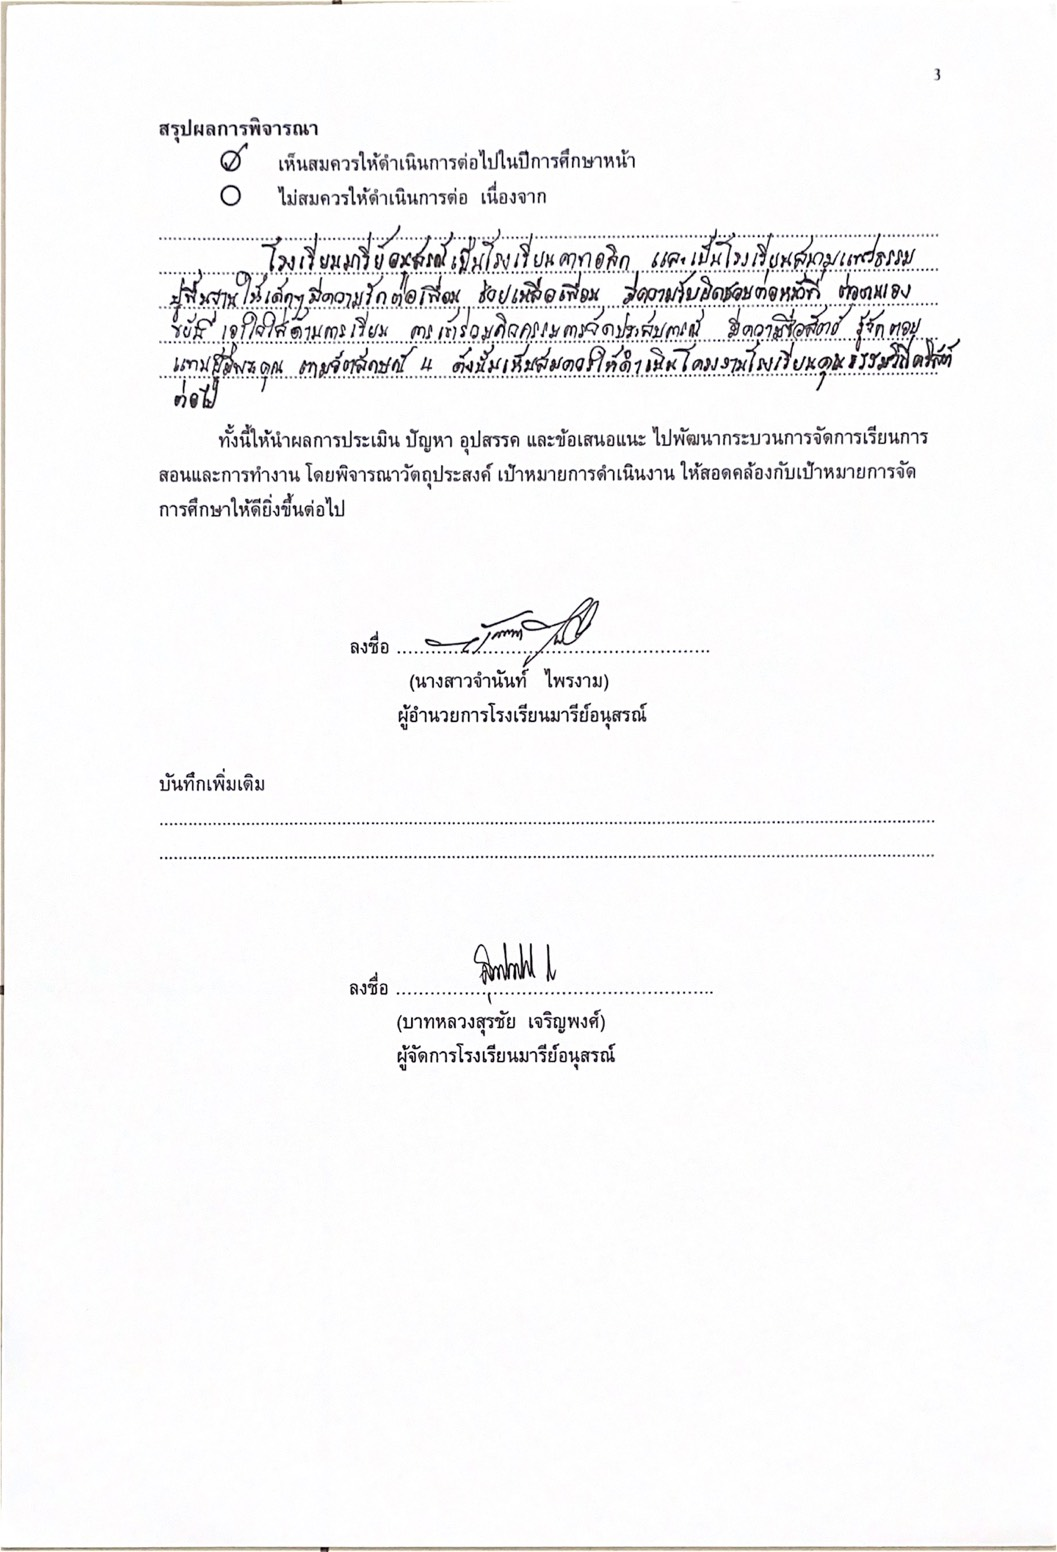 3
สรุปผลการพิจารณา
เห็นสมควรให้ดำเนินการต่อไปในปีการศึกษาหน้า
ไม่สมควรให้ดำเนินการต่อ เนื่องจาก
โรงเรียนมารีย์อนุสรณ์เป็นโรงเรียนคาทอลิก และเป็นโรงเรียนสนามแพร่ธรรม
ปูพื้นฐานให้เด็กๆ มีความรักต่อเพื่อน ช่วยเหลือเพื่อน มีความรับผิดชอบต่อหน้าที่ ต่อตนเอง
ขยัน เอาใจใส่ด้านการเรียน การเข้าร่วมกิจกรรมการจัดประสบการณ์ มีความซื่อสัตย์ รู้จักตอบ
แทนผู้มีพระคุณ ตามอัตลักษณ์ 4 ดังนั้นเห็นสมควรให้ดำเนินโครงงานโรงเรียนคุณธรรมวิถีคริสต์
ต่อไป
ทั้งนี้ให้นำผลการประเมิน ปัญหา อุปสรรค และข้อเสนอแนะ ไปพัฒนากระบวนการจัดการเรียนการ
สอนและการทำงาน โดยพิจารณาวัตถุประสงค์ เป้าหมายการดำเนินงาน ให้สอดคล้องกับเป้าหมายการจัด
การศึกษาให้ดียิ่งขึ้นต่อไป
ลงชื่อ
(นางสาวจำนันท์ ไพรงาม)
ผู้อำนวยการโรงเรียนมารีย์อนุสรณ์
บันทึกเพิ่มเติม
ลงชื่อ
(บาทหลวงสุรชัย เจริญพงศ์)
ผู้จัดการโรงเรียนมารีย์อนุสรณ์